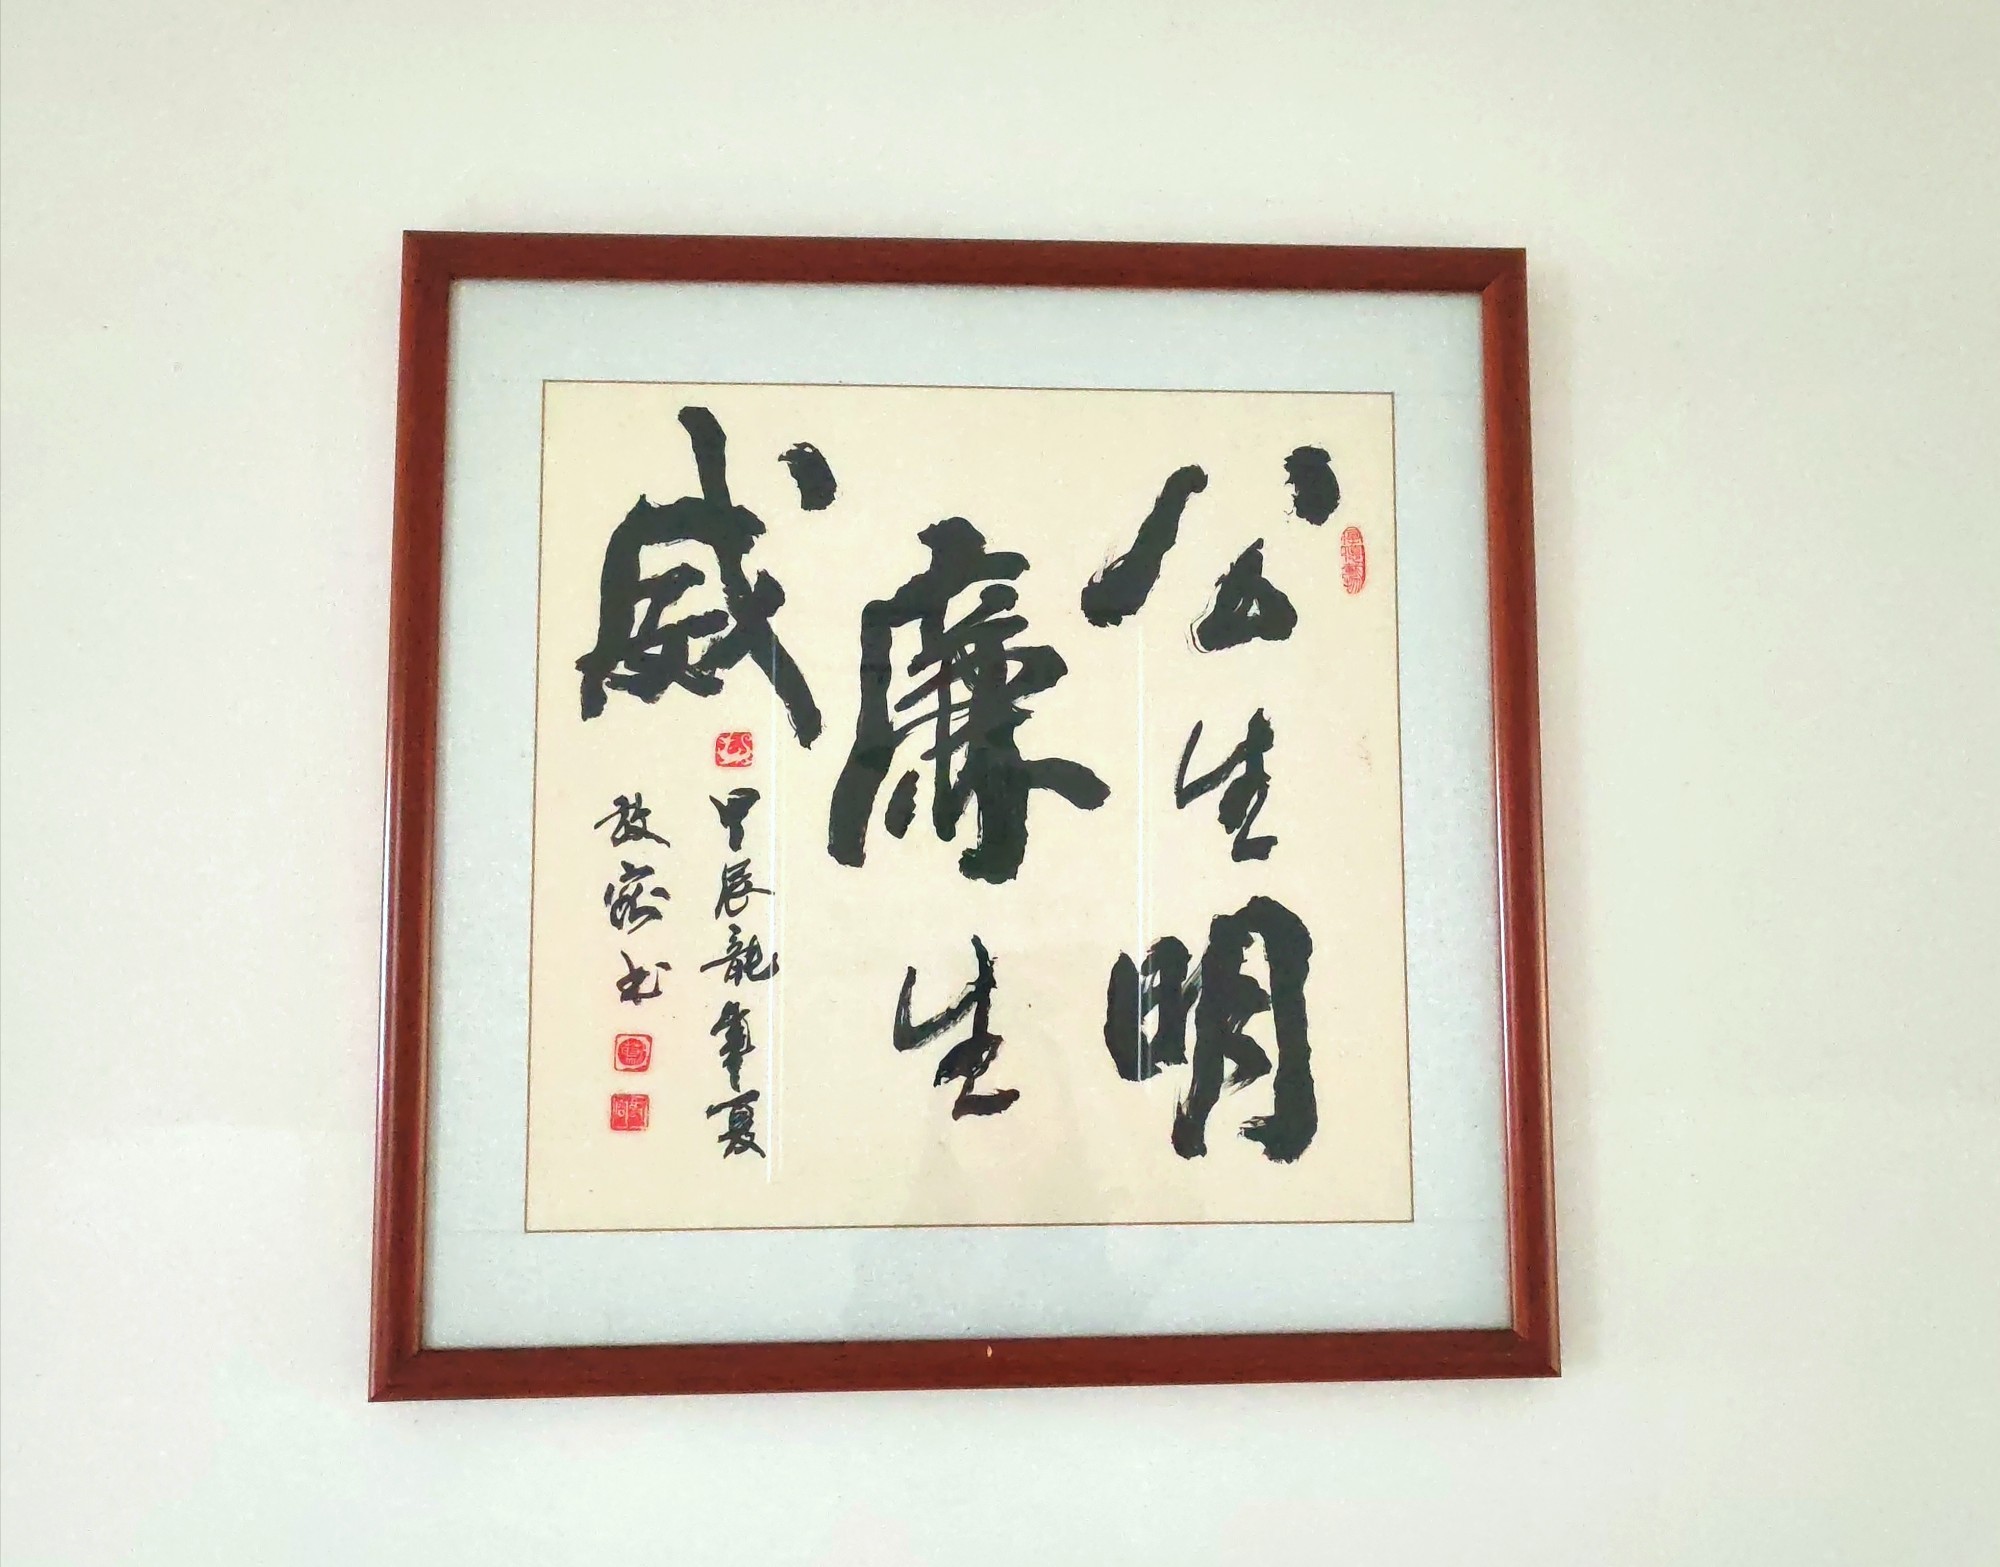 公生明
廉生
威
甲辰龍年夏
敬
书